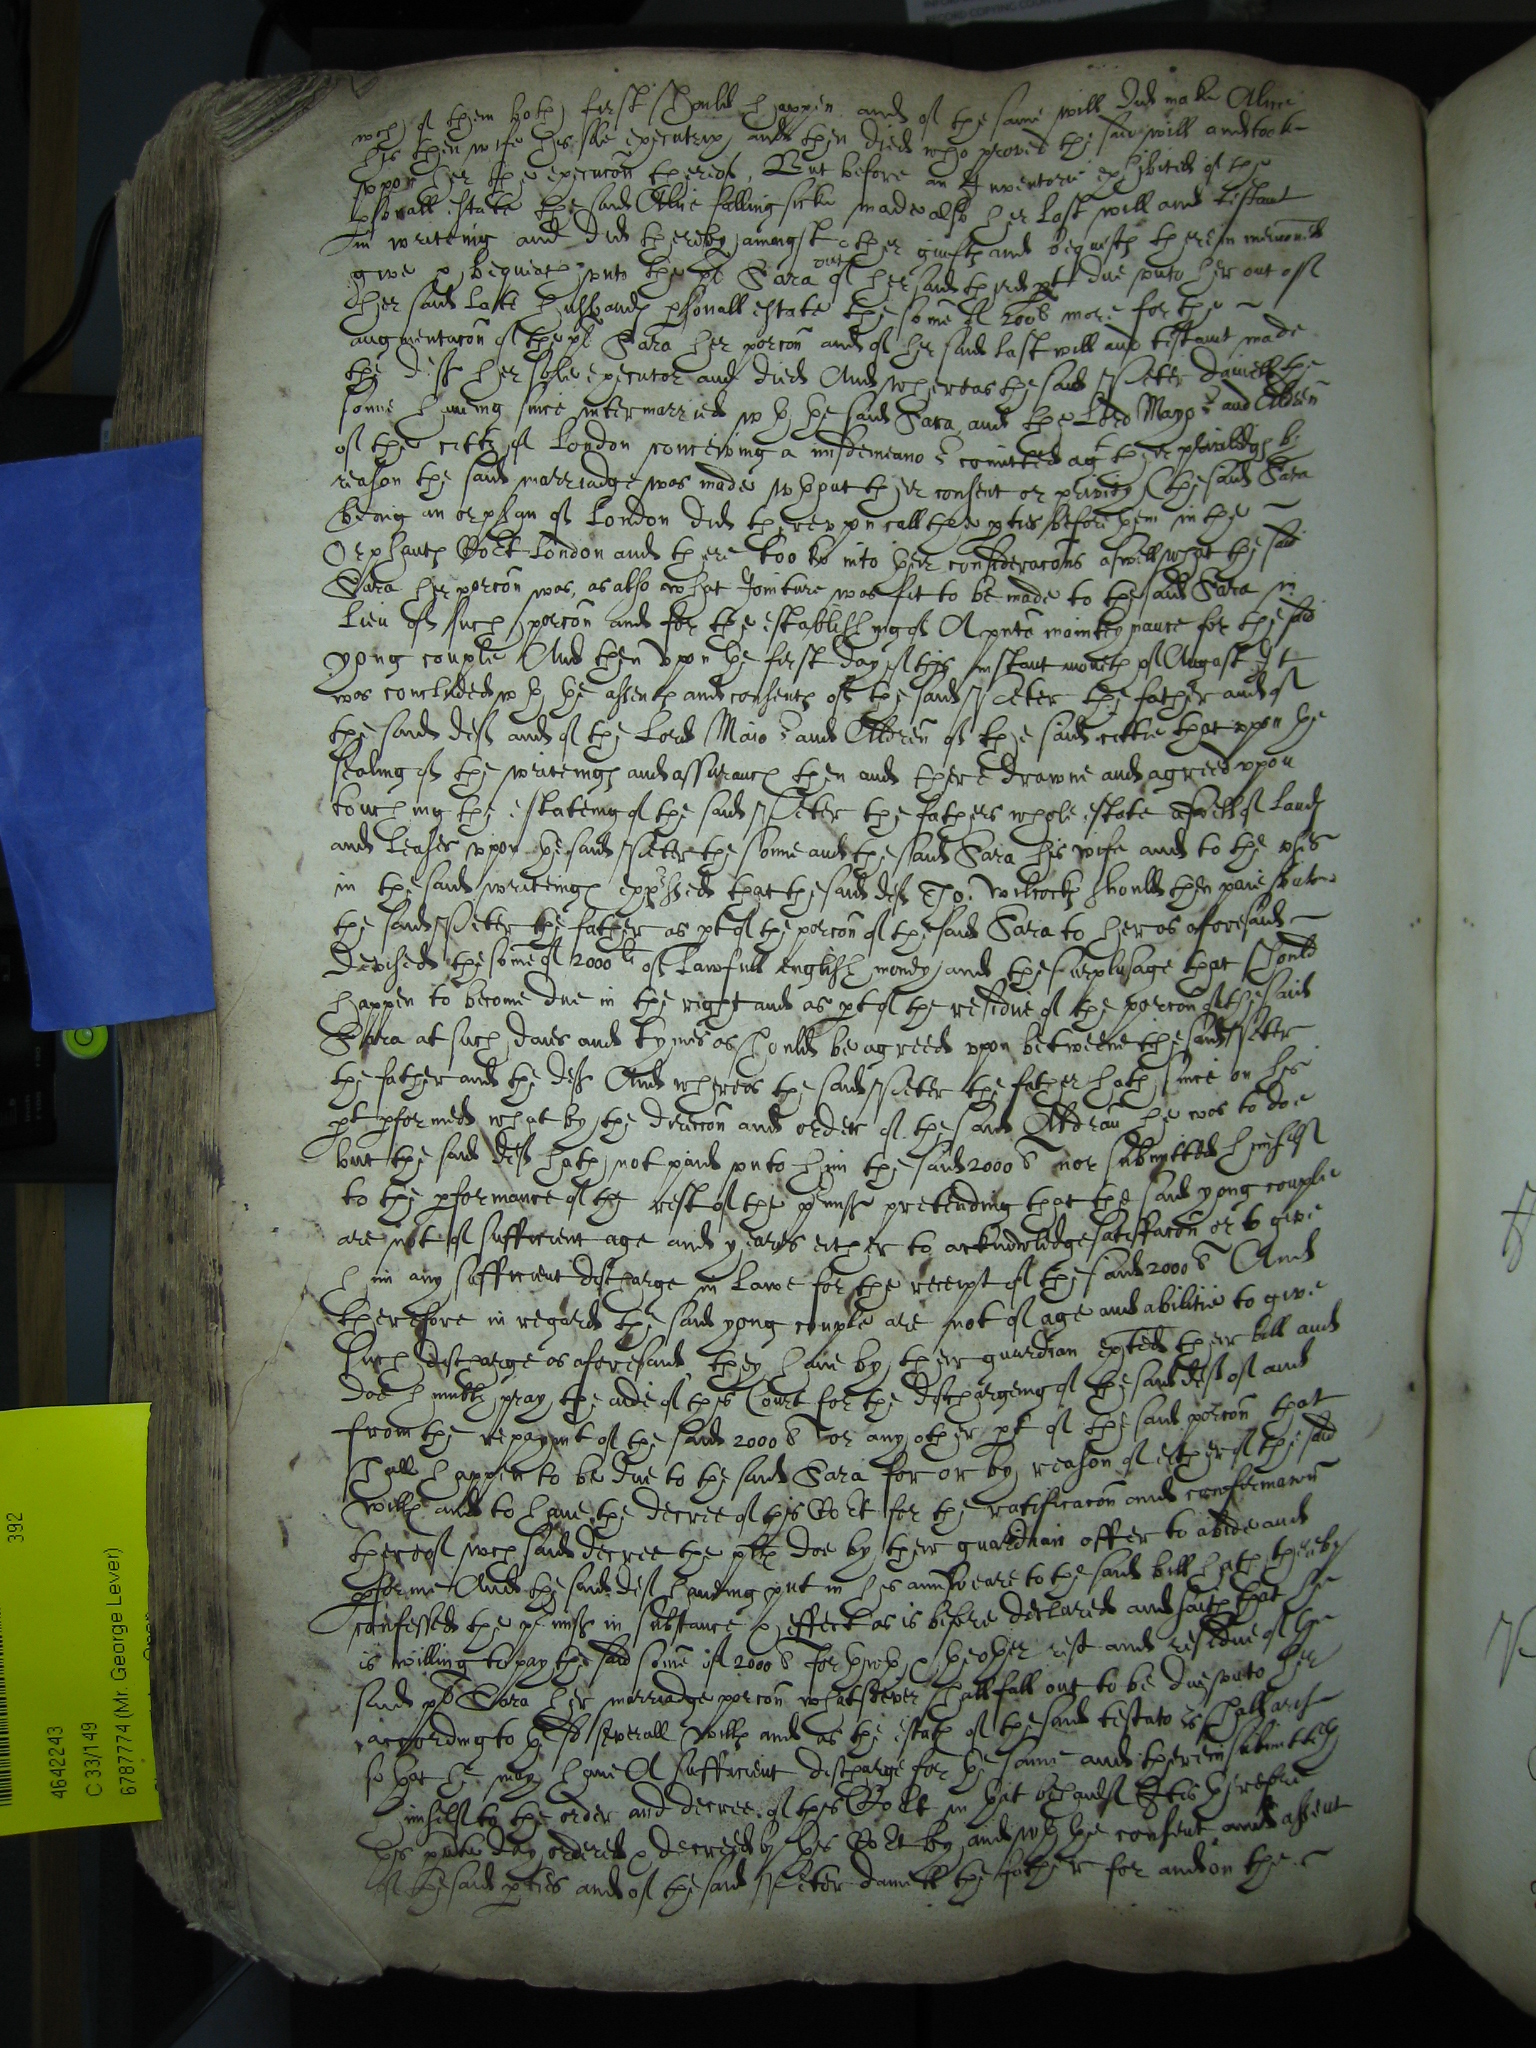 wch of them both first should happen and of the same will did make Alice
his then wife his sole executrix and then died who proved the said will and tooke
vppon her the execucon thereof, But before an Inventorie exhibited of the
psonall estate the said Alice falling sicke made also her last will and testamt
in writeing and did thereby amongst other guifts and bequests therein mencioned
give & bequeath vnto the pl Sara out of her said third pt due vnto her out of
her said late husbands psonall estate the some of 200l more for the
augmentacon of the pl Sara her porcon and of her said last will and testamt made
the deft her sole executor and died And whereas the said Peter Damett the
sonne haveing since intermarried wth the said Sara, and the Lord Mayor and Aldren
of the citty of London conceiving a misdemeanor comitted agt their priviledges by
reason the said marriadge was made wthout their consent or privity (the said Sara
being an orphan of London did therevpon call the pties before them in the
Orphants Cort London and there tooke into their consideracons aswell what the said
Sara her porcon was, as also what Jointure was fit to be made to the said Sara in
lieu of such porcon and for the establishing of A pnte mainteynance for the said
yong couple And then vpon the first day of this instant moneth of August It
was concluded wth the assents and consents of the said Peter the father and of
the said deft and of the Lord Maior and Aldren of the said cittie that vpon the
sealing of the writeings and assurancs then and there drawne and agreed vpon
touching the estateing of the said Peter the fathers whole estate aswell of lands
and leases vpon the said Peter the sonne and the said Sara his wife and to the vses
in the said writeings expressed that the said deft Tho: Wilcocks should then paie vnto
the said Peter the father as pt of the porcon of the said Sara to her as aforesaid
devised the some of 2000li of lawfull english money and the surplusage that should
happen to become due in the right and as pt of the residue of the porcon of the said
Sara at such daies and tymes as should be agreed vpon betweene the said Peter
the father and the deft And whereas the said Peter the father hath since on his
pt pformed what by the direccon and order of the said Aldran he was to doe
but the said deft hath not paid vnto him the said 2000l nor submytted himself
to the pformance of the rest of the pmiss pretending that the said yong couple
are not of sufficient age and yeares either to acknowledge satisfacon or to give
him any sufficient discharge in lawe for the receipt of the said 2000l And
therefore in regard the said yong couple are not of age and abilitie to give
such discharge as aforesaid they have by their guardian exhted their bill and
doe humbly pray the aide of this Court for the dischargeing of the said deft of and
from the repaymt of the said 2000l or any other pt of the said porcon that
shall happen to be due to the said Sara for or by reason of either of the said
wills and to have the decree of this Cort for the ratificacon and confirmacon
thereof wch said decree the plts doe by their guardian offer to abide and
pforme And the said deft haveing put in his aunsweare to the said bill hath thereby
confessed the pmiss in substance & effect as is before declared and saith that he
is willing to pay the said some of 2000l forthwth & the other rest and residue of the
said pl Sara her marriadge porcon whatsoever shall fall out to be due vnto her
according to the severall wills and as the estats of the said testators shall arise
so that he may have A sufficient discharge for the same and therein submitteth
himself to the order and decree of this Cort in that behalf It is therefore
this pnte day ordered & decreed by this Cort by and wth the consent and assent
of the said pties and of the said Peter Damett the father for and on the
4642243
C 33/149
6787774 (Mr. George Lever)
392